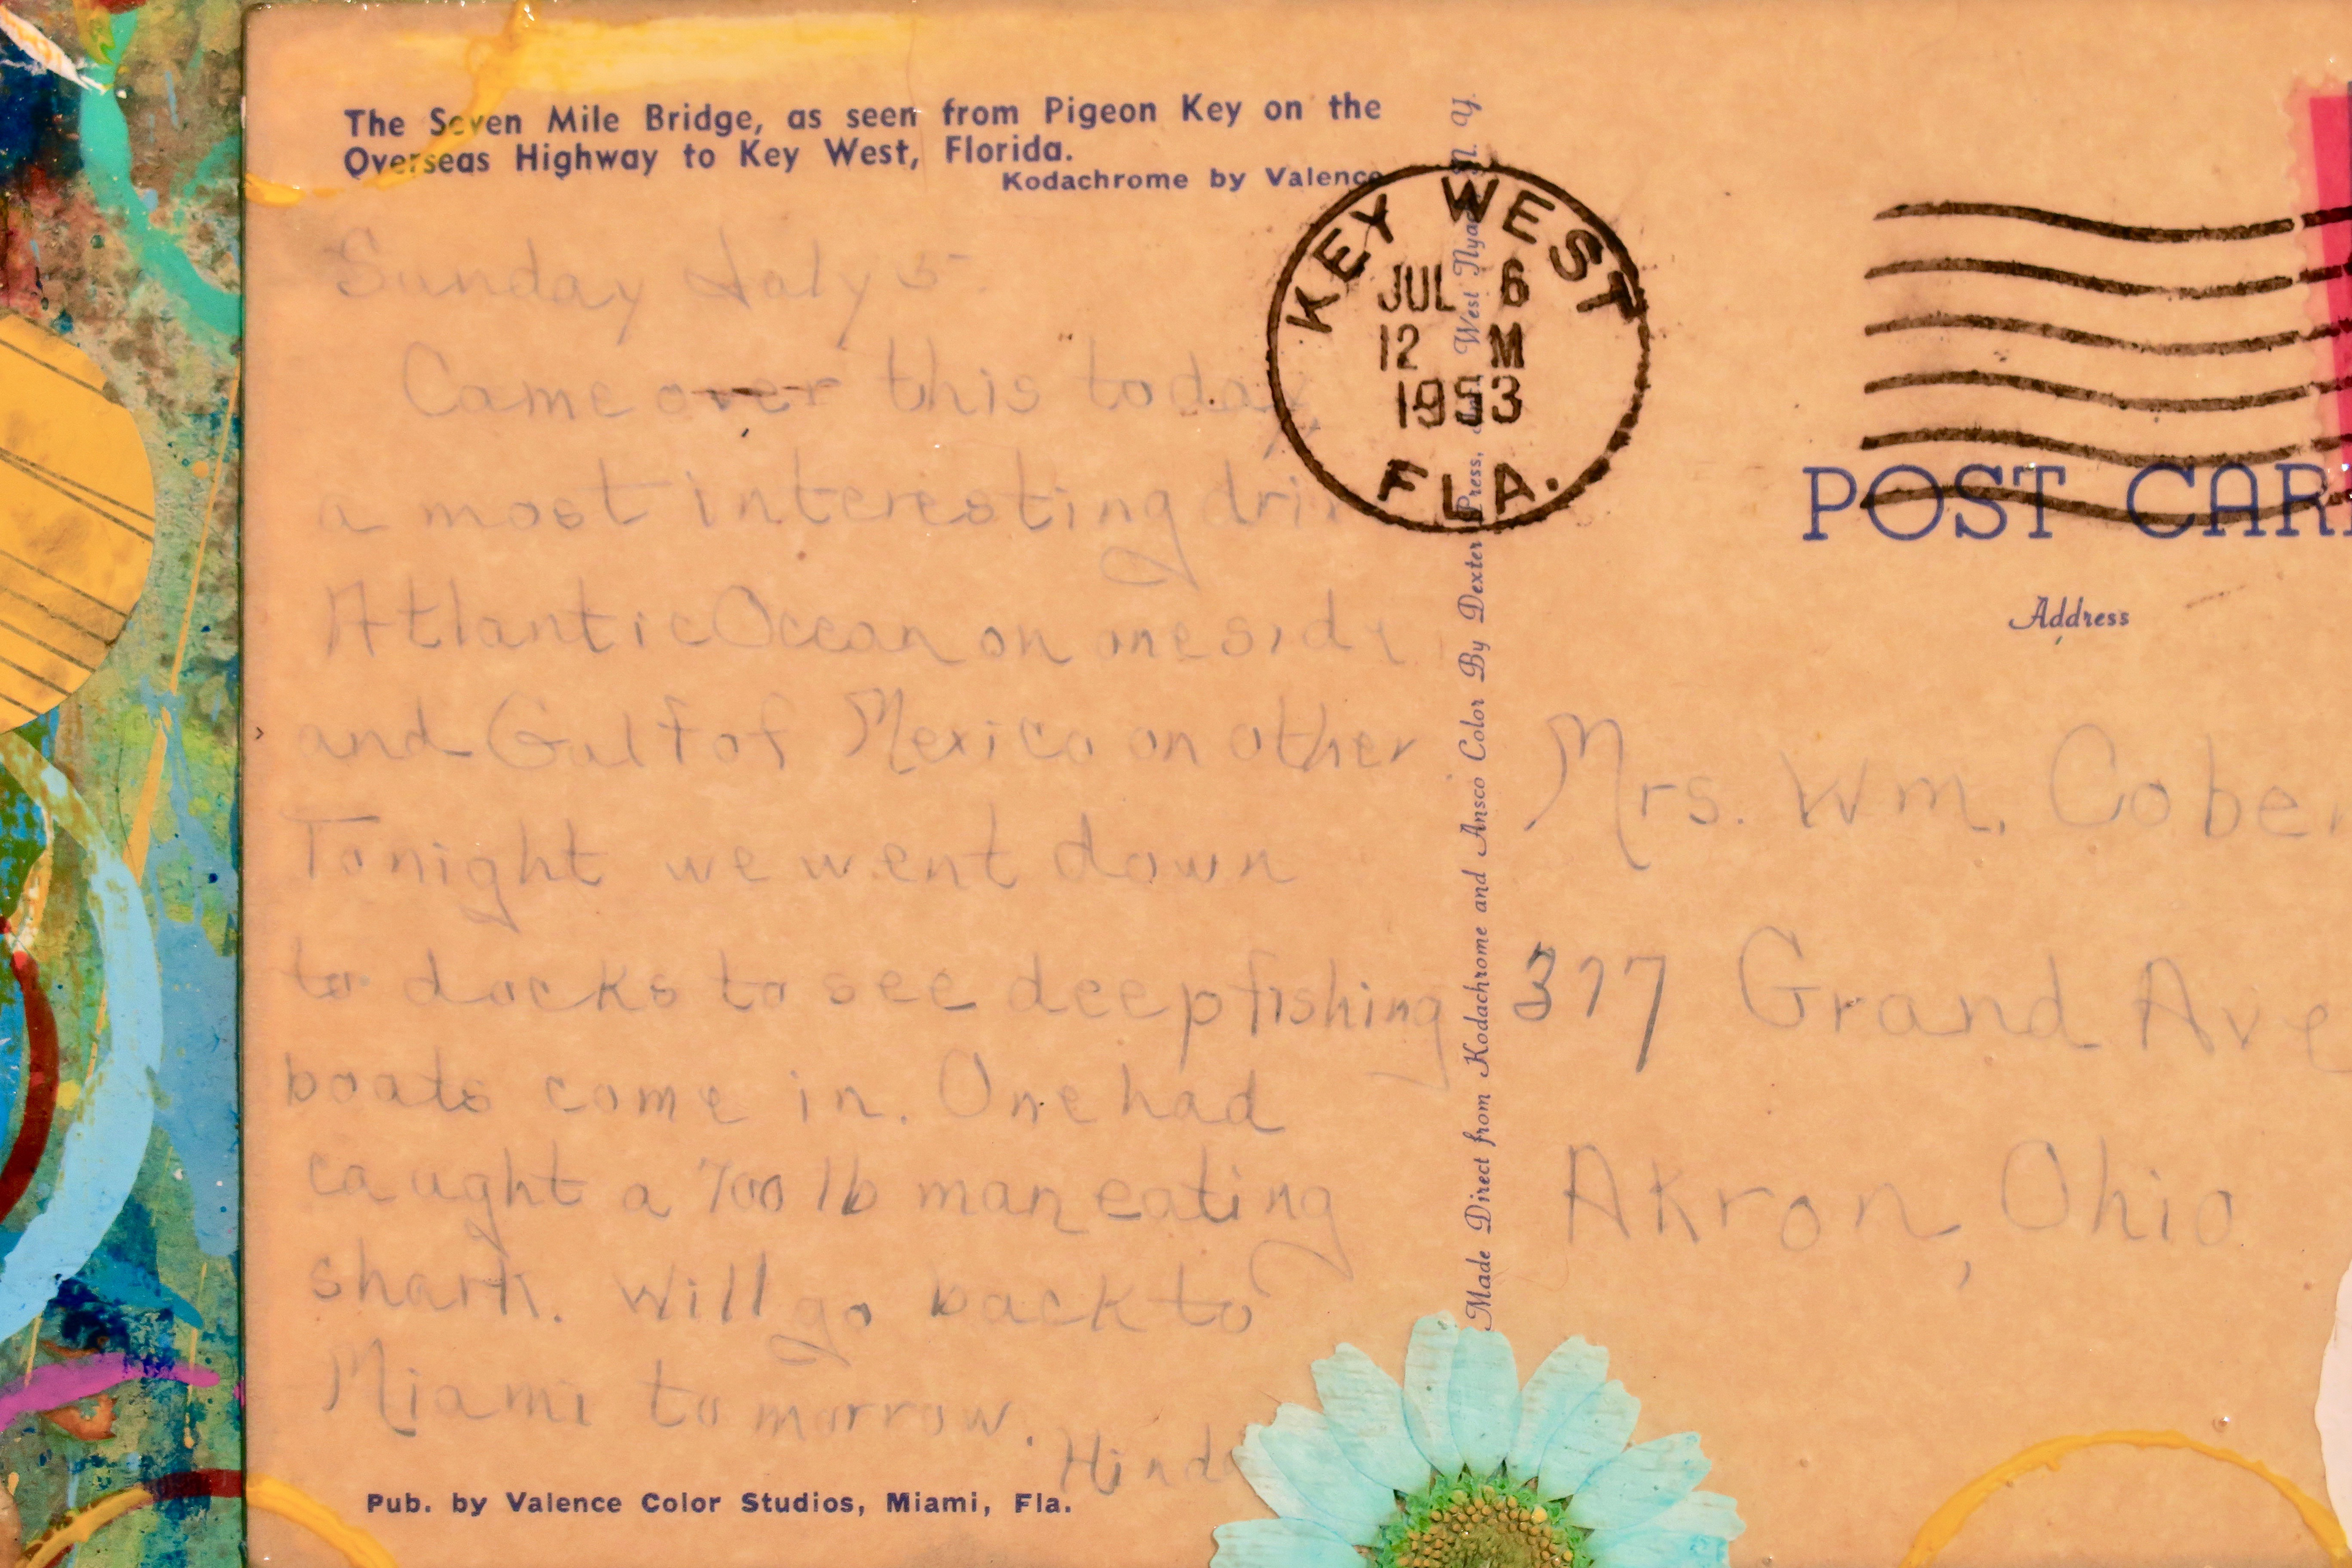 The Seven Mile Bridge, as seen from Pigeon Key on the
Overseas Highway to Key West, Florida.
Kodachrome by Valence
Sunday July 5
Came over this today,
a most interesting
Atlantic Ocean on one side
and Gulf of Mexico on other
Tonight we went down
to docks to see deep fishing
boats come in. One had
caught a 700 lb man eating
shark. Will go back to
Miami tomorrow.
Pub. by Valence Color Studios, Miami, Fla.
Made Direct from Kodachrome and Ansco Color By Dexter Press, West N. Y.
KEY WEST
JUL 6
12 M
1953
FLA.
POST CAR
Address
Mrs. Wm.
377 Grand Ave
Akron, Ohio